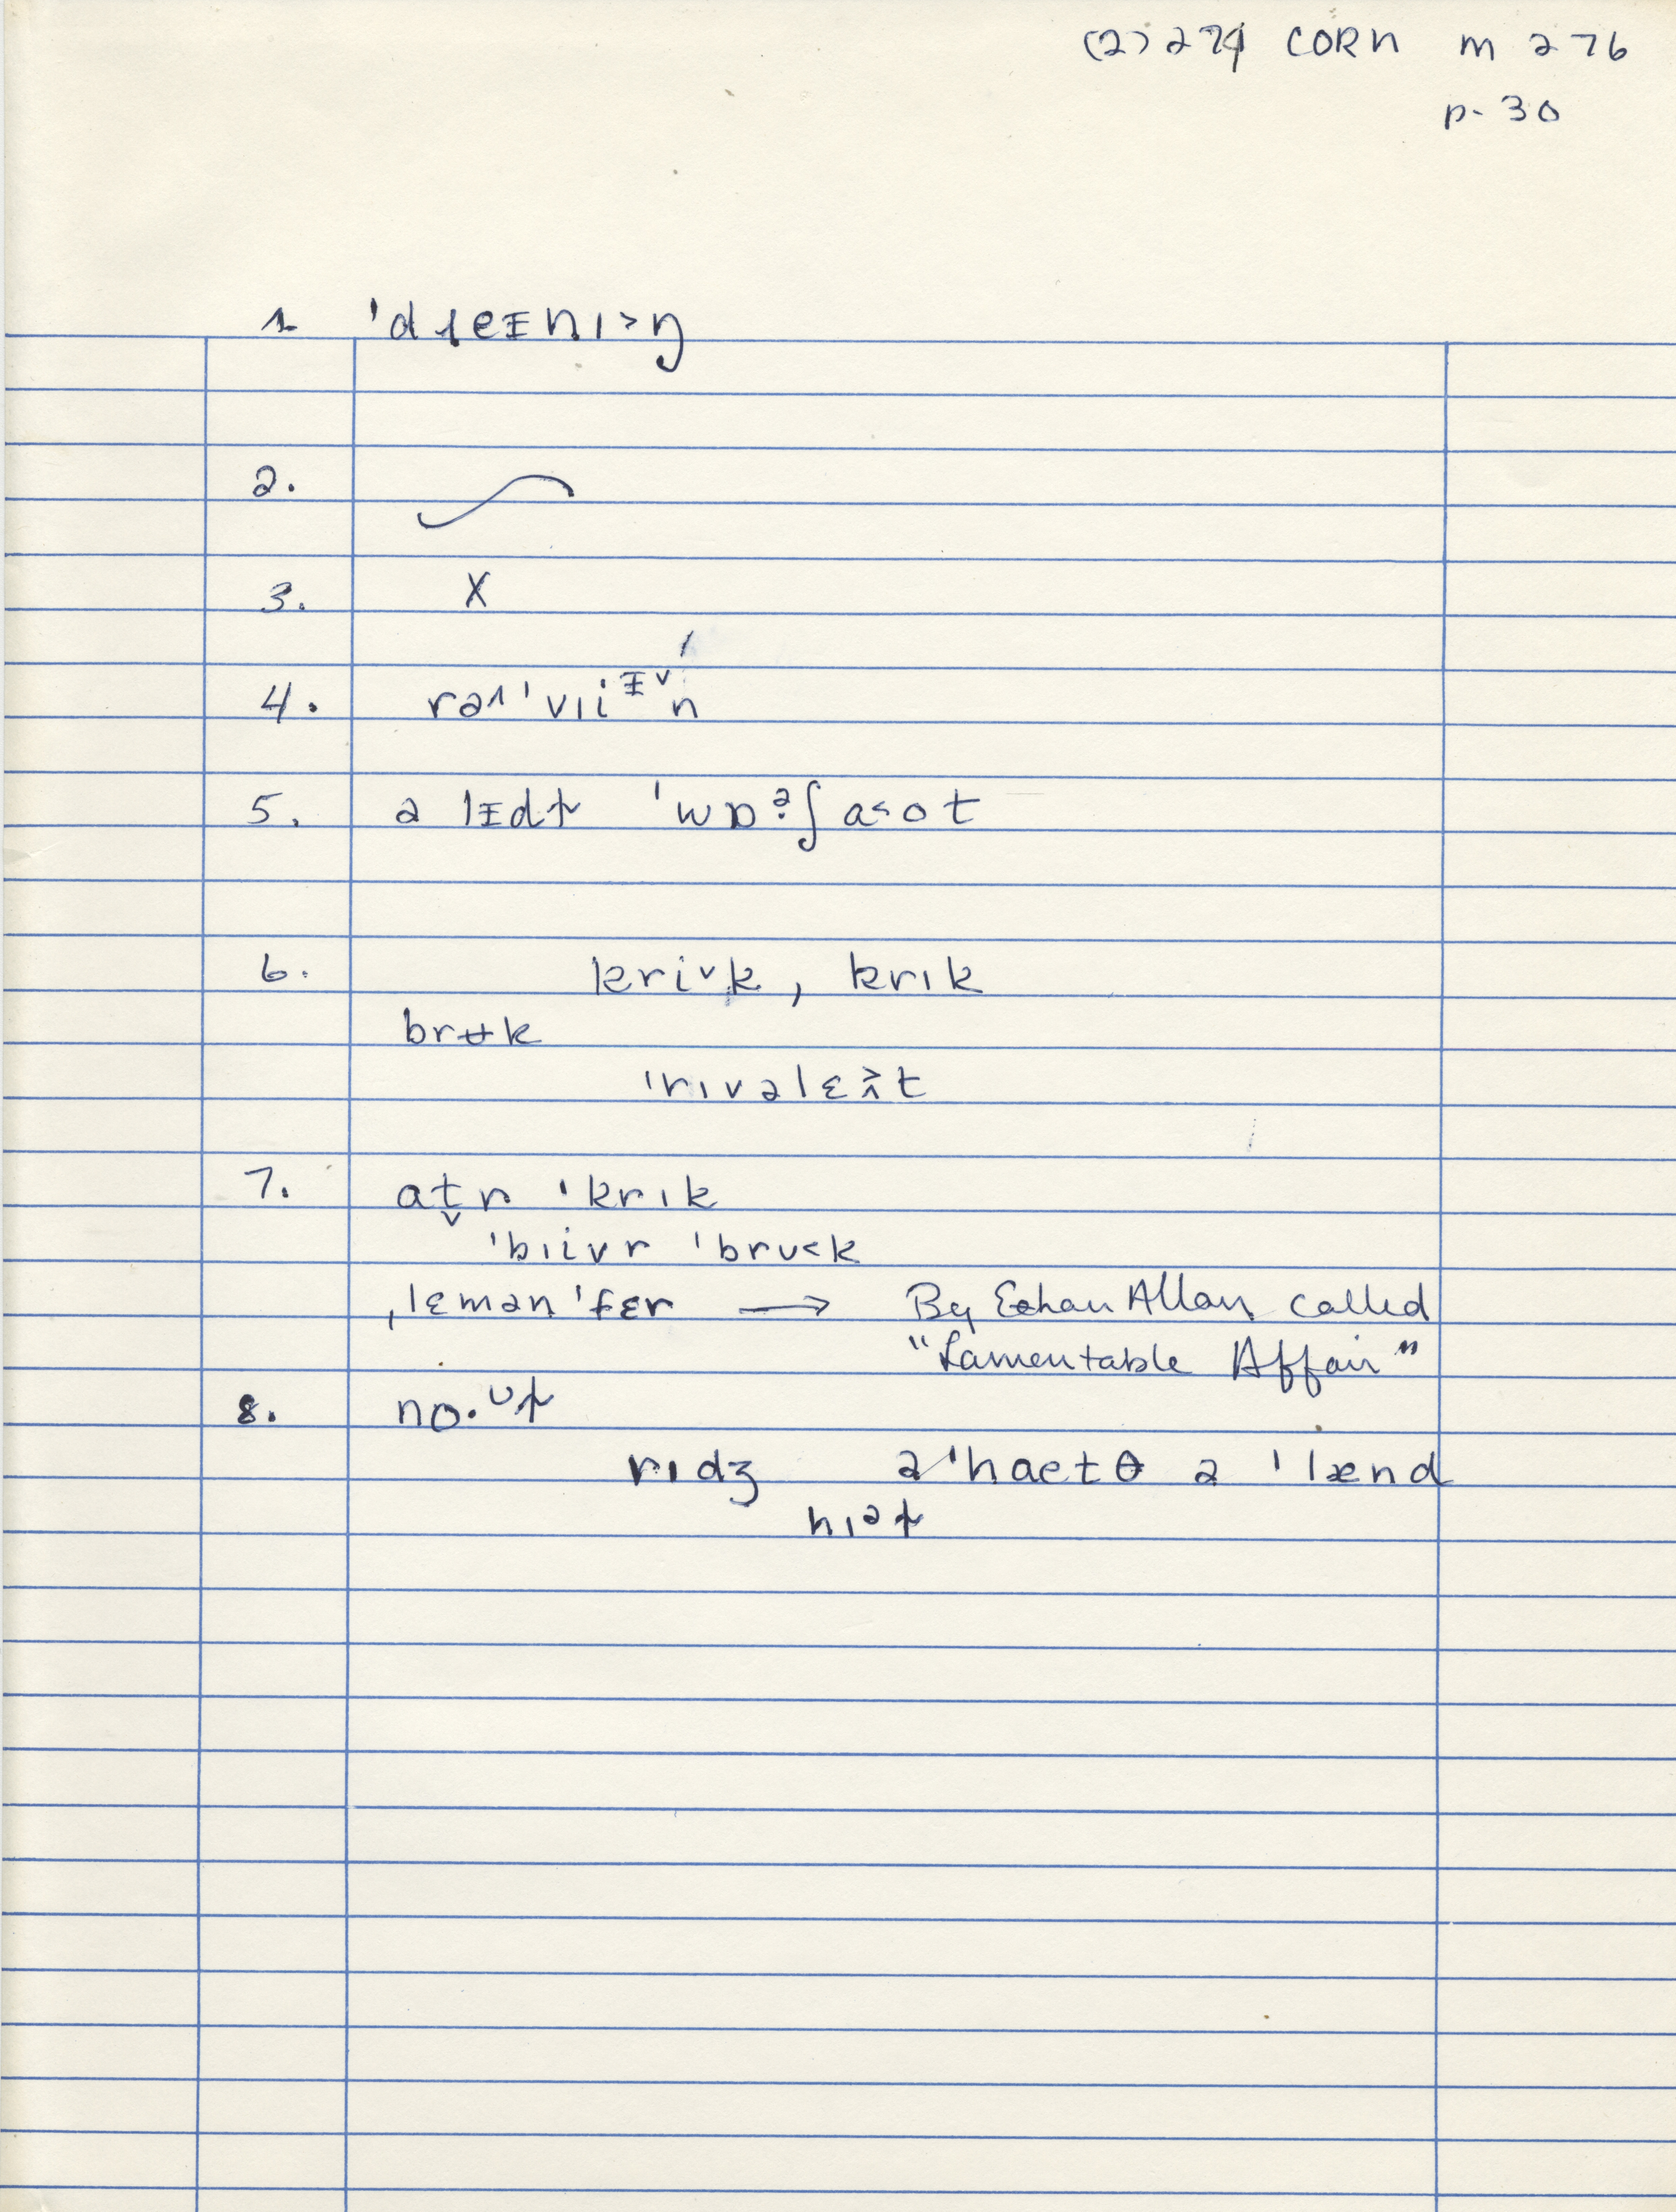 (2) 274 CORN m 276
p. 30
1. 'dɹeɪnɪ˃ŋ
2.
3. X
4. rəʌ'vɪiᵻ˅n
5. ə lᵻdt 'wɒ.ᵊʃa˂ot
6. kri˅k, krɪk
brʉk
'rɪvəlɛt
7. at̬r 'krɪk
'bɪivr 'brʊ˂k
ˌlɛmən'fɛr → By Ethan Allan called
"Lamentable Affair"
8. no.ᶸt
rɪdʒ ə'haetθ ə 'lænd
hɪᵊt